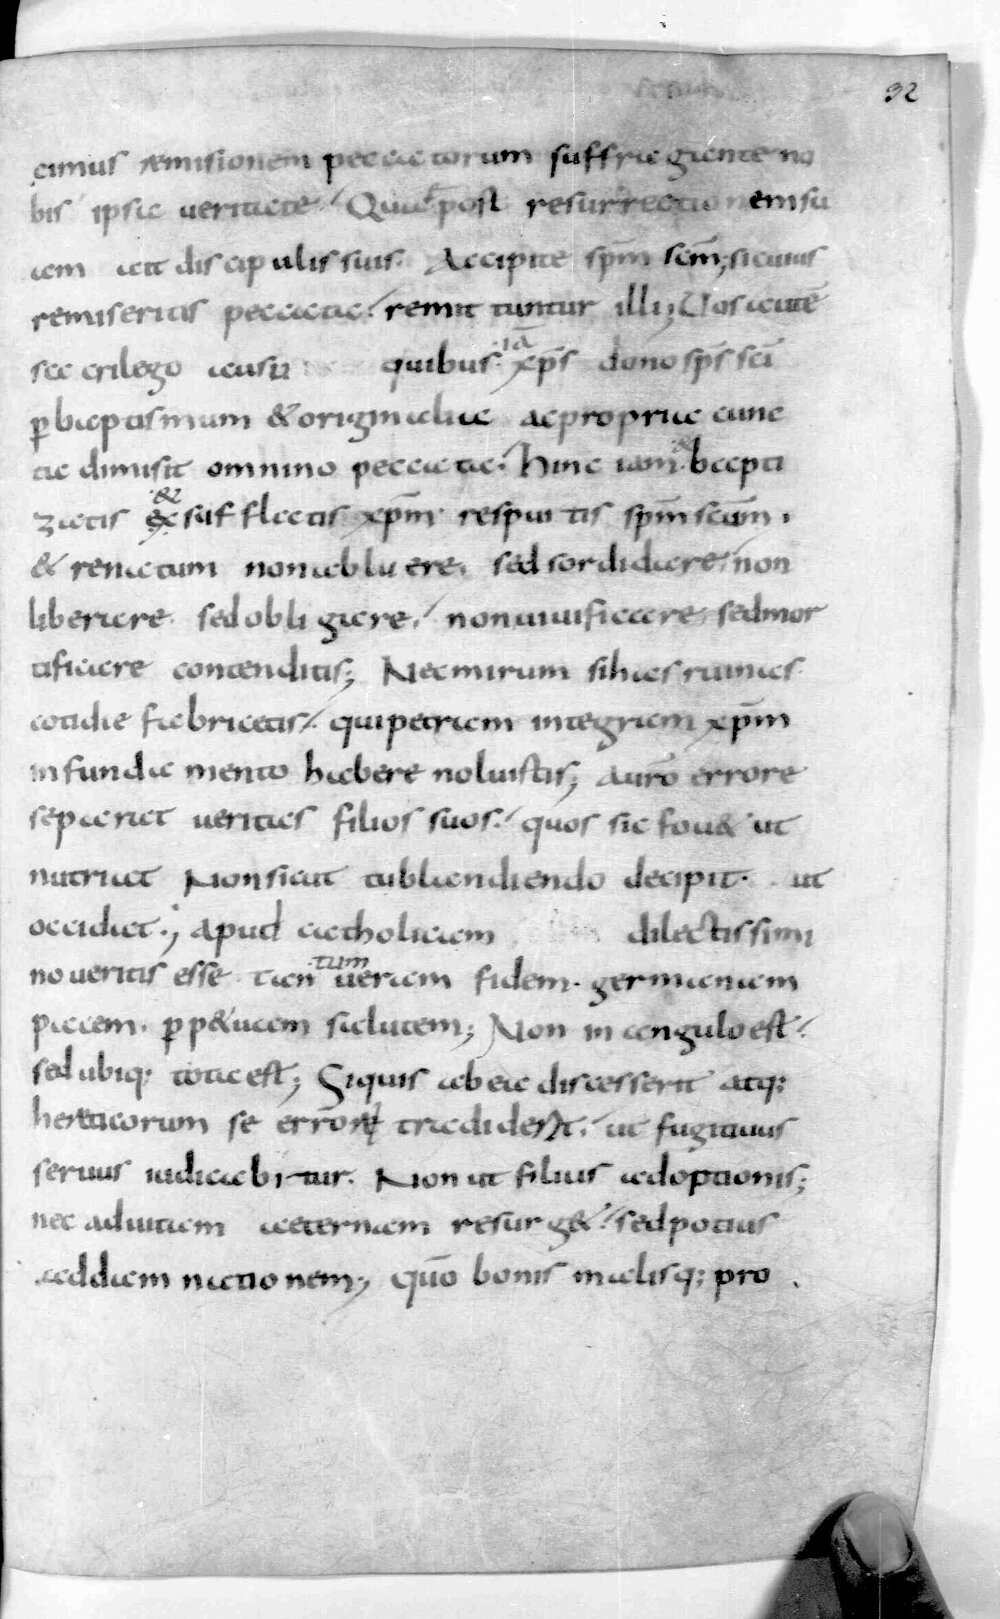 92
cimus remisionem peccatorum suffragante no
bis ipsa ueritate. Quae post resurrectionem su
am ait discipulis suis. Accipite spm̄ scm̄; si cuius
remiseritis peccata. remittuntur illi; Uos autē
sacrilego ausu quibus iā xp̄s dono sp̄s sc̄i
ꝑ baptismum & originalia ac propria cunc
ta dimisit omnino peccata. Hinc iam & bapti
zatis & exsufflatis xp̄m respuitis spm̄ scm̄.
& renatum non abluere. sed sordidare. non
liberare. sed obligare. non uiuificare sed mor
tificare contenditis; Nec mirum si has ruinas
cotidie fabricatis. qui petram integram xp̄m
in fundamento habere noluistis; a uro errore
separat ueritas filios suos. quos sic fou& ut
nutriat Non sicut tu blandiendo decipit. ut
occidat.; apud catholicam dilectissimi
noueritis esse tan tum ueram fidem. germanam
pacem. ꝑp&uam salutem; Non in angulo est.
sed ubiq; tota est; Siquis ab ea discesserit atq;
hereticorum se errori tradiderit. ut fugitiuus
seruus iudicabitur. Non ut filius adoptionis;
nec ad uitam aeternam resurg&. sed potius
ad damnationem; quō bonis malisq; pro